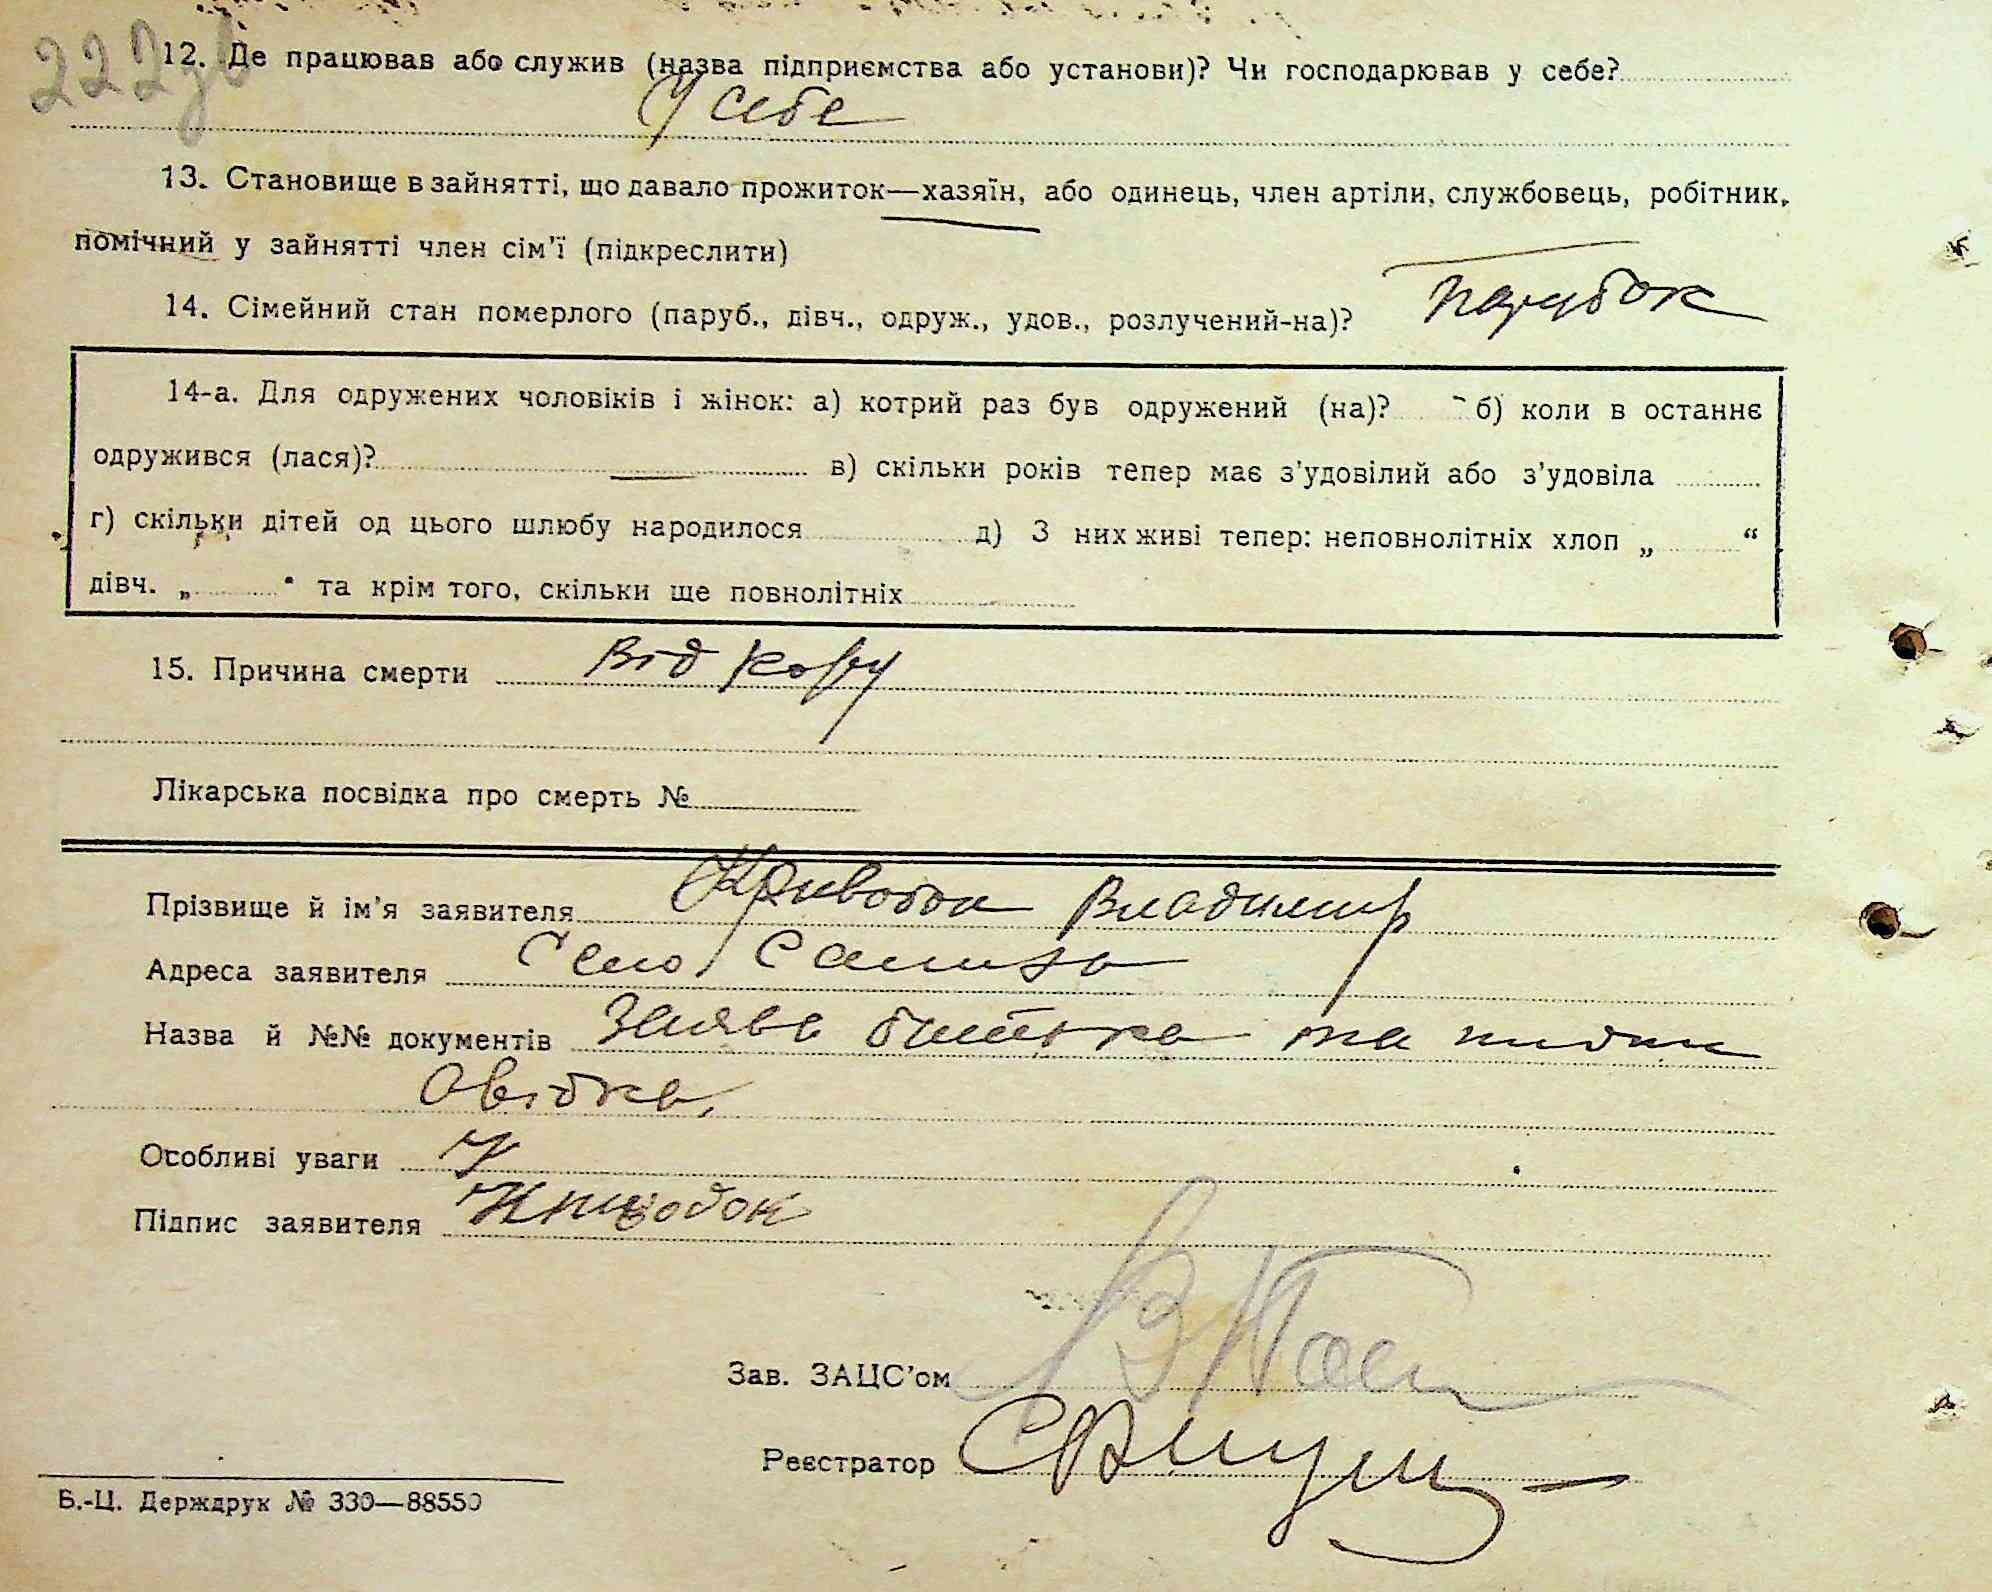 222зв
12. Де працював або служив (назва підприємства або установи)? Чи господарював у себе?
У себе
13. Становище в зайнятті, що давало прожиток—хазяїн, або одинець, член артіли, службовець, робітник,
помічний у зайнятті член сім'ї (підкреслити)
14. Сімейний стан померлого (паруб., дівч., одруж., удов., розлучений-на)? Парубок
14-а. Для одружених чоловіків і жінок: а) котрий раз був одружений (на)? б) коли в останнє
одружився (лася)? — в) скільки років тепер має з'удовілий або з'удовіла
г) скільки дітей од цього шлюбу народилося д) З них живі тепер: неповнолітніх хлоп „ “
дівч. „ “ та крім того, скільки ще повнолітніх
15. Причина смерти Від кору
Лікарська посвідка про смерть №
Прізвище й ім'я заявителя Кривобок Владимир
Адреса заявителя Село
Назва й №№ документів Заява батька та
Особливі уваги
Підпис заявителя Кривобок
Зав. ЗАЦС'ом
Реєстратор
Б.-Ц. Держдрук № 330—88550